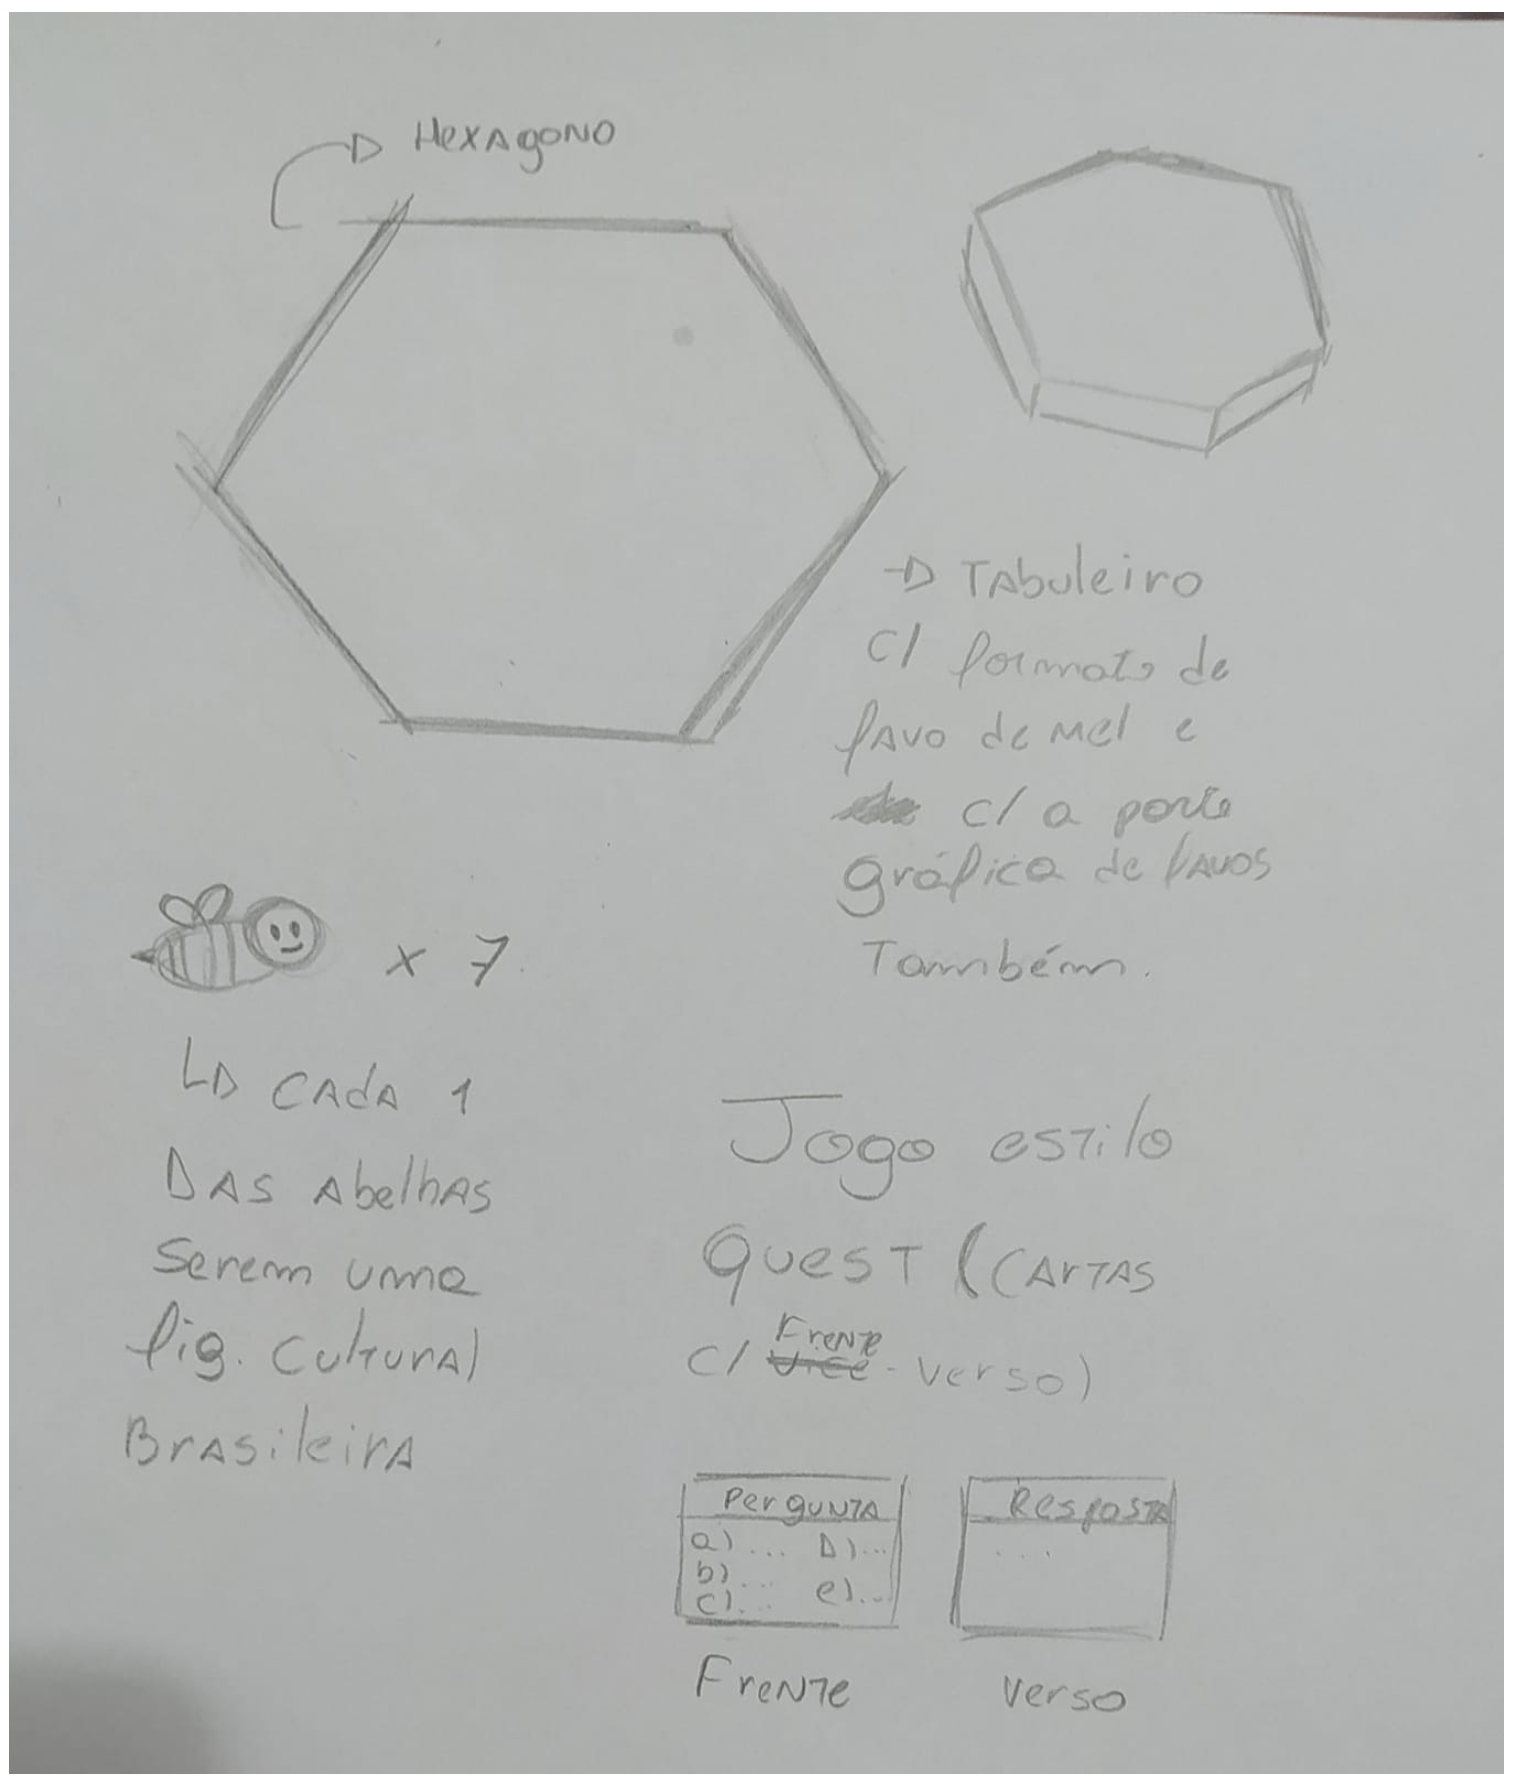 Hexagono
Tabuleiro
c/ formato de
favo de mel e
c/ a parte
gráfica de favos
Também.
x 7
Cada 1
Das Abelhas
Serem uma
fig. Cultural
Brasileira
Jogo estilo
Quest (Cartas
Frente
c/ Vice-verso)
Pergunta
a)... D)...
b)...
c)... e)...
Resposta
...
Frente
verso